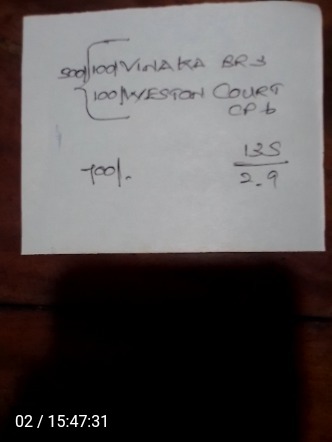 500/ 100/ VINAKA BR 3
100/ WESTON COURT
CP 6
700/.
135
2.9
02 / 15:47:31